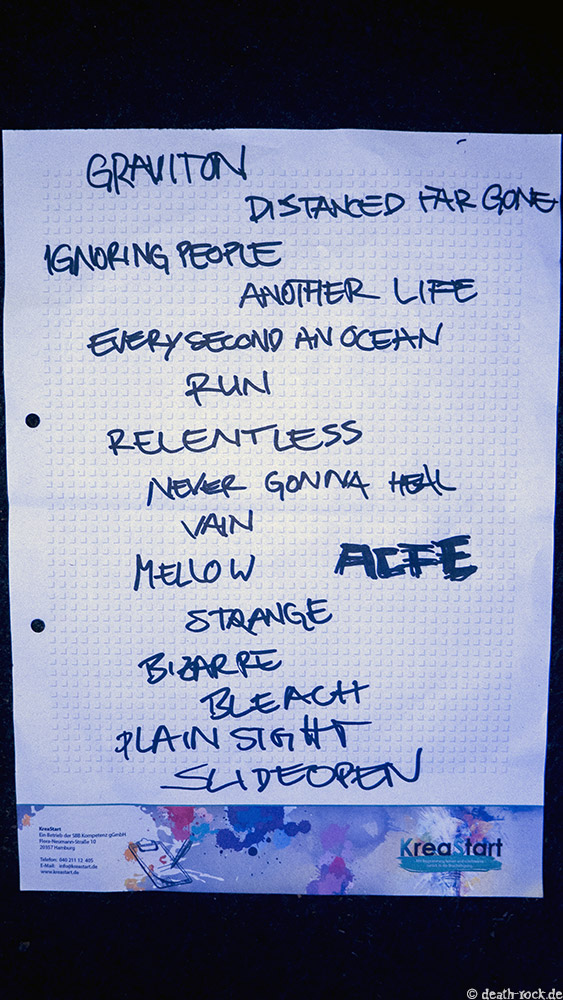 GRAVITON
DISTANCED FAR GONE
IGNORING PEOPLE
ANOTHER LIFE
EVERY SECOND AN OCEAN
RUN
RELENTLESS
NEVER GONNA HEAL
VAIN
MELLOW
ACFE
STRANGE
BIZARRE
BLEACH
PLAIN SIGHT
SLIDEOPEN
KreaStart
Ein Betrieb der SBB Kompetenz gGmbH
Flora-Neumann-Straße 10
20357 Hamburg
Telefon: 040 211 12 405
E-Mail: info@kreastart.de
www.kreastart.de
KreaStart
© death-rock.de